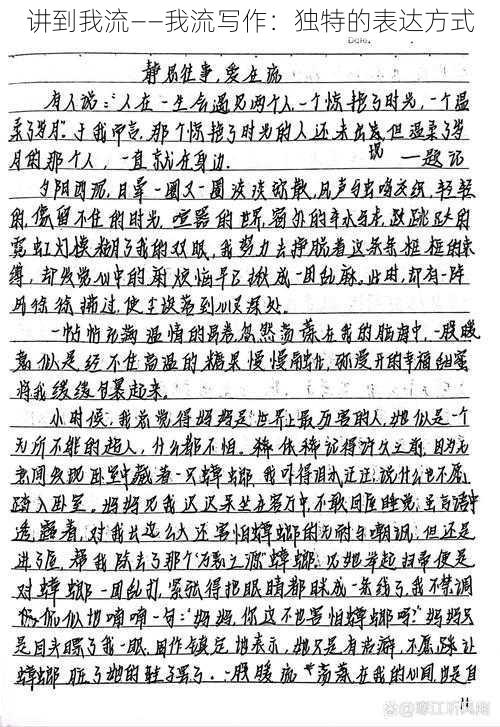 讲到我流——我流写作：独特的表达方式
Date.
静居往事，爱在流
有人说："人在一生会遇见两个人，一个惊艳了时光，一个温
柔了岁月"。于我而言，那个惊艳了时光的人还未出发，但温柔了岁
月的那个人，一直就在身边。
说
——题记
夕阳西沉，日晕一圈又一圈淡淡弥散，风声与鸟鸣交织，轻轻
的，像留不住的时光，喧嚣的世界，窗外的车水马龙，跃跳的
霓虹灯模糊了我的双眼，我努力去挣脱着这条条框框的束
缚，却发觉心中的烦恼早已揪成一团乱麻。此时，却有一阵
风徐徐拂过，使尘埃落到心灵深处。
一帖帖充满温情的画卷忽然荡漾在我的脑海中，一股暖
意似是经不住高温的糖果慢慢融化，弥漫开的幸福细蜜
将我缓缓包裹起来。
小时候，我总觉得妈妈是世界上最厉害的人，她似是一个
无所不能的超人，什么都不怕。依稀记得许久之前，因为无
意间发现卧室中藏着一只蟑螂，我吓得泪水汪汪，说什么也不愿
踏入卧室。妈妈见我迟迟呆坐在客厅中，不敢回屋睡觉，虽言语中
透露着，对我长这么大还害怕蟑螂的无耐与嘲讽，但还是
进了屋，帮我除去了那个"万恶之源"蟑螂；见她举起扫帚便是
对蟑螂一团乱打，紧张得把眼睛都眯成一条线了，我不禁调
侃似地喃喃一句："妈妈，你这不也害怕蟑螂吗？"妈妈只
是回头瞟了我一眼，故作镇定地表示，她只是有洁癖，不愿踩让
蟑螂脏了她的鞋子罢了。一股暖流荡漾在我的心间，也是自
11